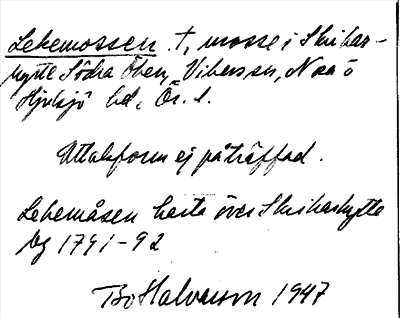 Lekemossen †, mosse i Skrikar-
hytte Södra Öken, Vikersvik, Nora o
Hjulsjö bd, Ör. l.
Uttalsform ej påträffad.
Lekemåsen karta över Skrikarhytte
by 1791-92
Bo Halvarson 1947